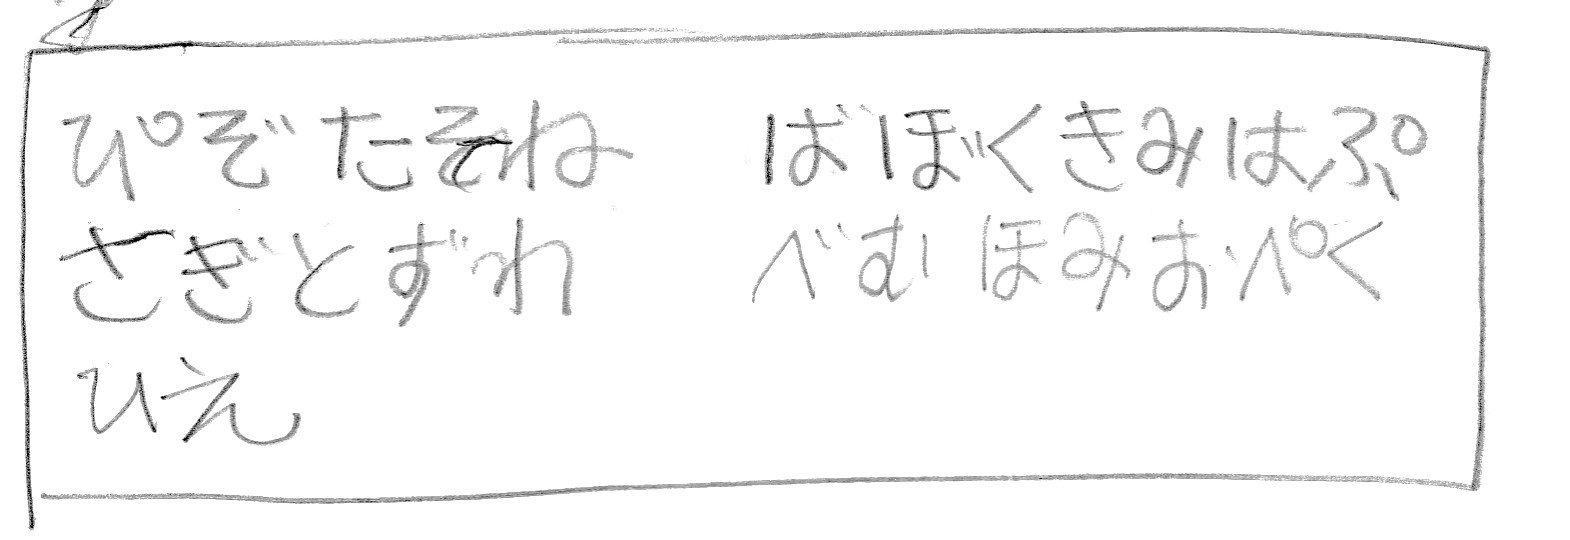 ぴぞたそね ばぼくきみはぷ
さぎとずれ べむほみおぺく
ひえ